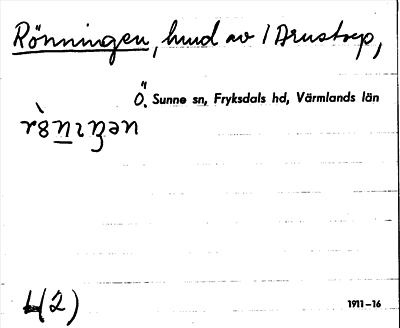 Rönningen, hund av 1 Arnstorp,
Ö. Sunne sn, Fryksdals hd, Värmlands län
(2)
1911-16